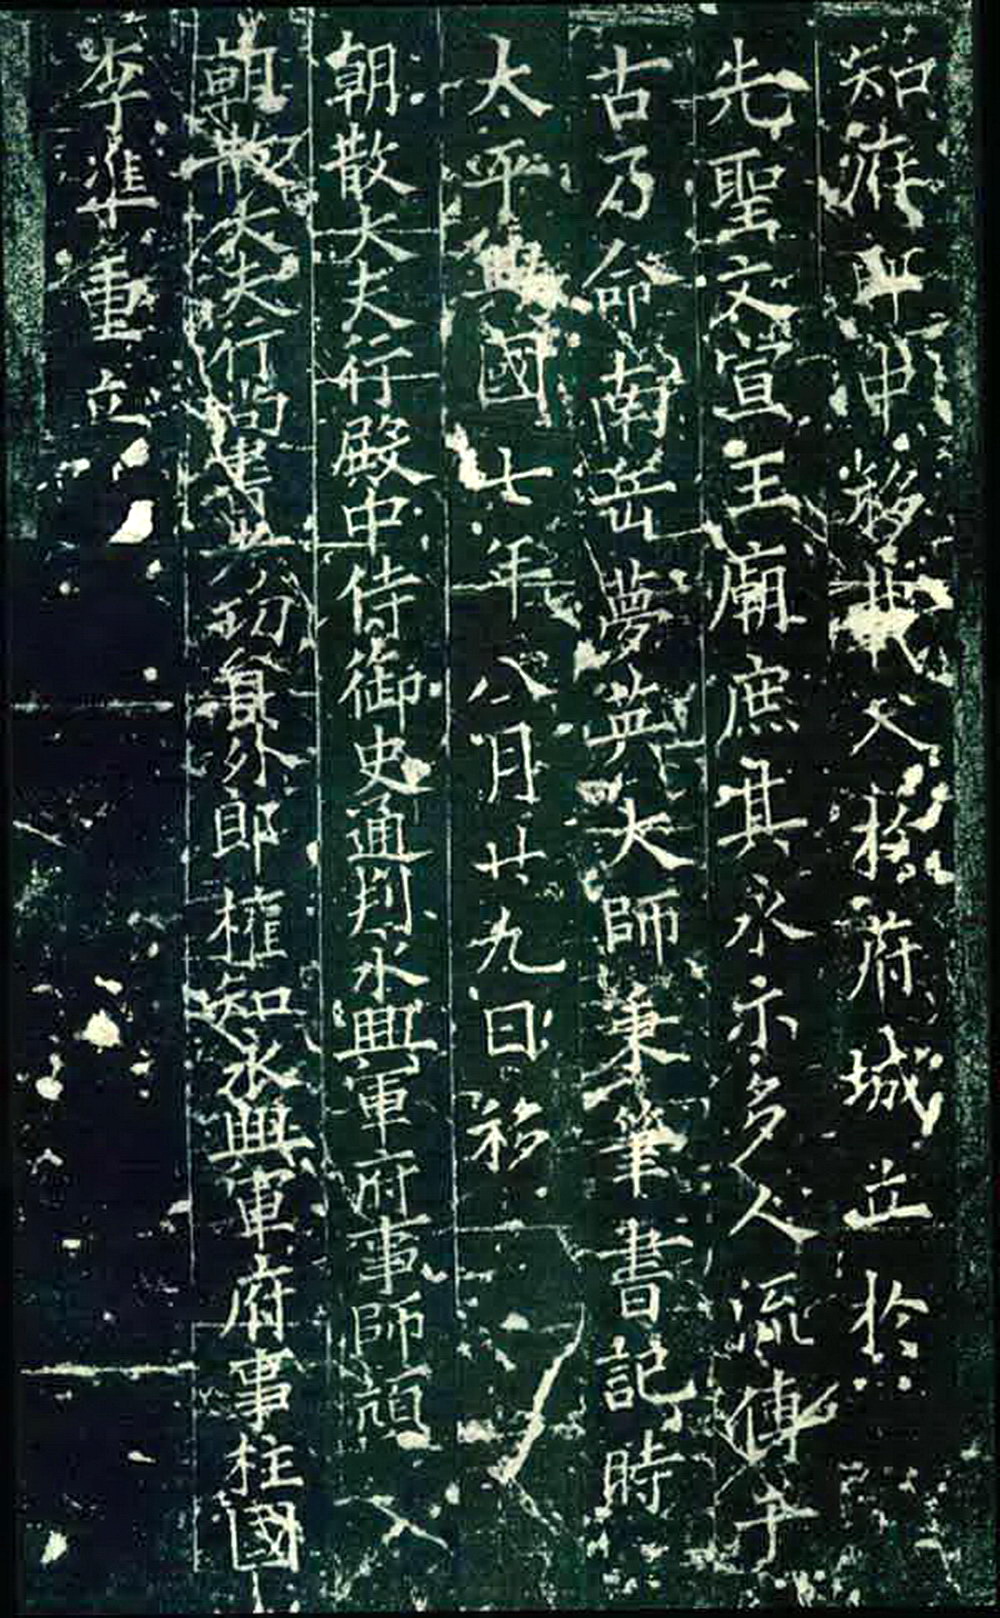 知府郎中移其文於府城立於
先聖文宣王廟庶其永示多人流傳千
古乃命南岳夢英大師秉筆書記時
太平興國七年八月廿九日移
朝散大夫行殿中侍御史通判永興軍府事師頏
朝散大夫行尚書兵部員外郎權知永興軍府事柱國
李準重立